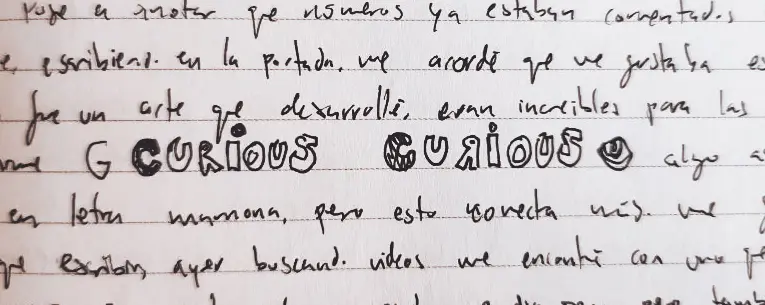 a anotar que números ya estaban comentados
escribiend. en la portada, me acordé que me gustaba es
fue un arte que desarrollé, eran increíbles para las
G CURIOUS CURIOUS algo
en letra mamona, pero esto conecta más. me
que escribn, ayer buscand. videos me encontré con una